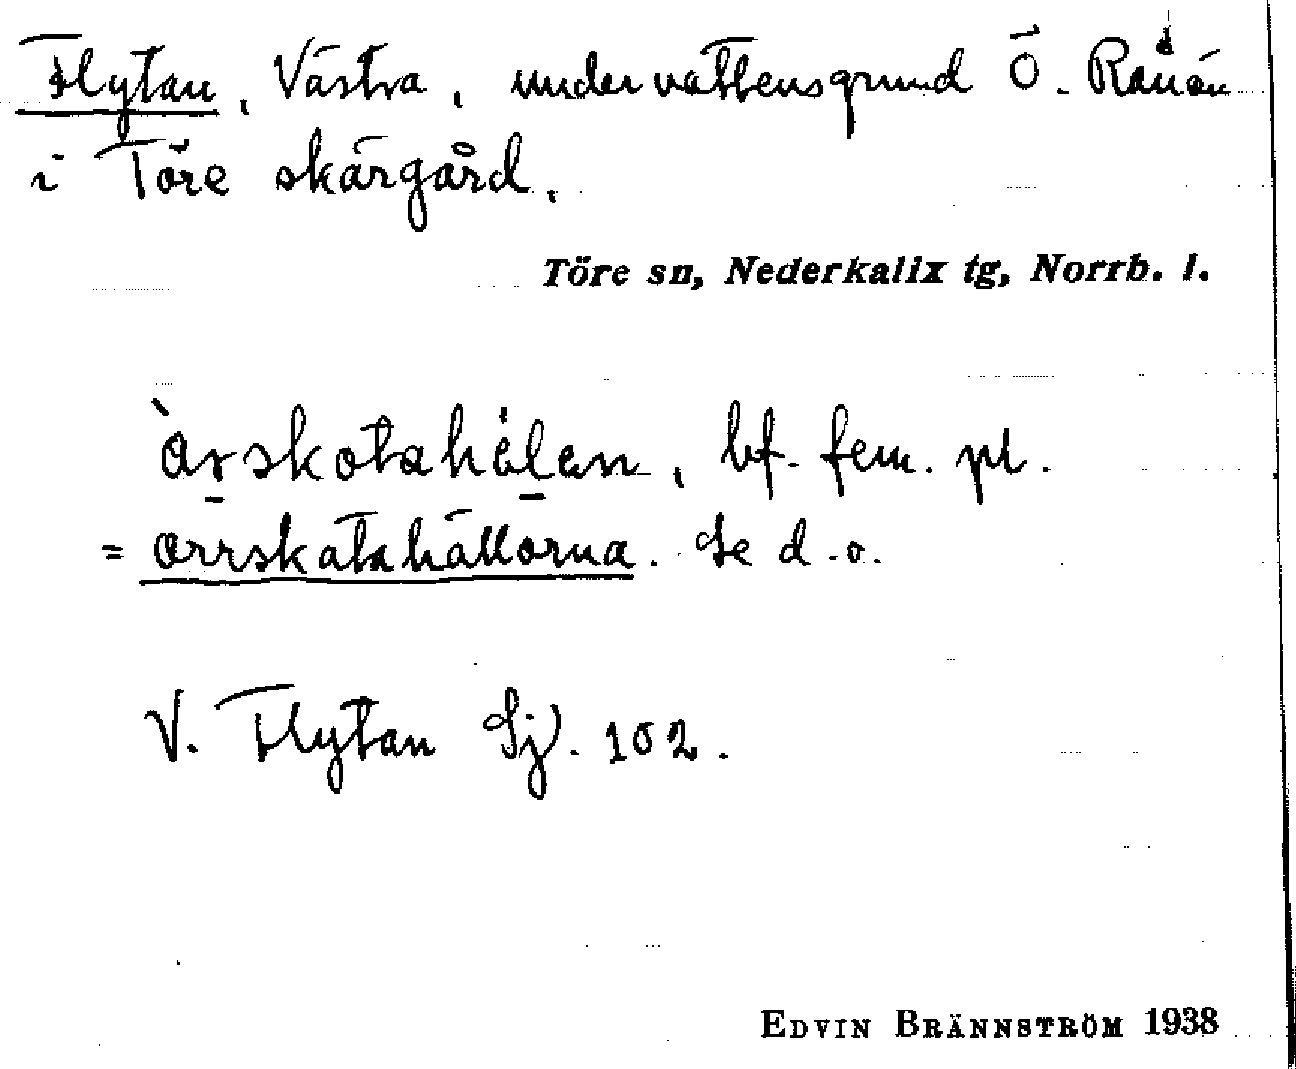 Flytan, Västra, undervattensgrund Ö. Rånön
i Töre skärgård.
Töre sn, Nederkalix tg, Norrb. l.
àrskotahèlen, bf. fem. pl.
= orrskatahällorna. Se d.o.
V. Flytan Sj. 102.
EDVIN BRÄNNSTRÖM 1938